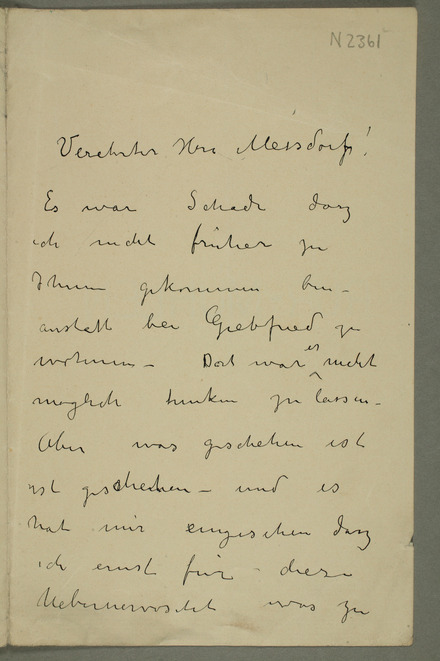 N2361
Verehrter Herr Meisdorf!
Es war Schade dasz
ich nicht früher zu
Ihnen gekommen bin –
anstatt bei Giebfried zu
wohnen – Dort war es nicht
möglich trinken zu lassen –
Aber was geschehen ist
ist geschehen – und es
hat mir eingesehen dasz
ich ernst für diese
Uebernervosität was zu